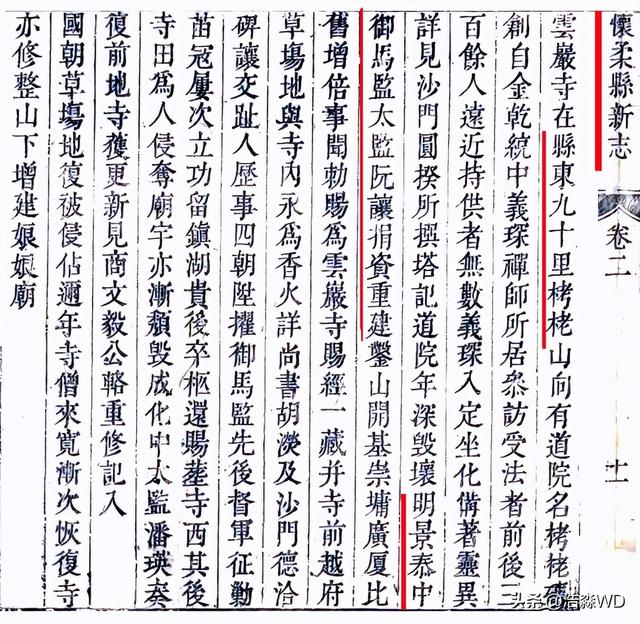 懷柔縣新志
卷二
十一
雲巖寺在縣東九十里栲栳山向有道院名栲栳
創自金乾統中義琛禪師所居叅訪受法者前後二
百餘人遠近持供者無數義琛入定坐化備著靈異
詳見沙門圓揆所撰塔記道院年深毀壞明景泰中
御馬監太監阮讓捐資重建鑿山開基崇墉廣厦比
舊增倍事聞勅賜為雲巖寺賜經一藏并寺前越府
草塲地與寺內永為香火詳尚書胡濙及沙門德洽
碑讓交趾人歷事四朝陞擢御馬監先後督軍征勦
苗冠屢次立功留鎮湖貴後卒柩還賜塟寺西其後
寺田為人侵奪廟宇亦漸頽毀成化中太監潘瑛奏
復前地寺獲更新見商文毅公輅重修記入
國朝草塲地復被侵佔邇年寺僧來寬漸次恢復寺
亦修整山下增建娘娘廟
头条@浩淼WD